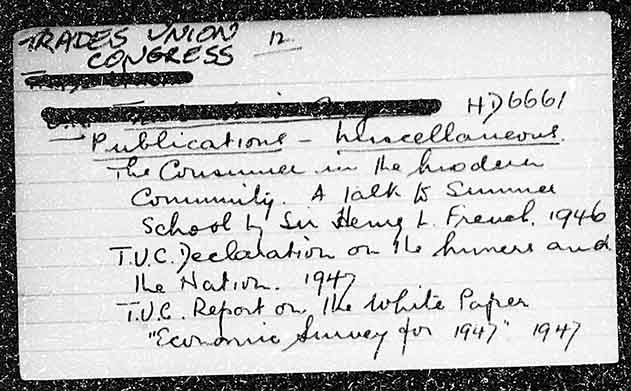 TRADES UNION 12
CONGRESS
HD6661
Publications - Miscellaneous.
The Consumer in the modern
Community. A talk to Summer
School by Sir Henry L. French. 1946
T.U.C. Declaration on the Miners and
the Nation. 1947
T.U.C. Report on the White Paper
"Economic Survey for 1947" 1947